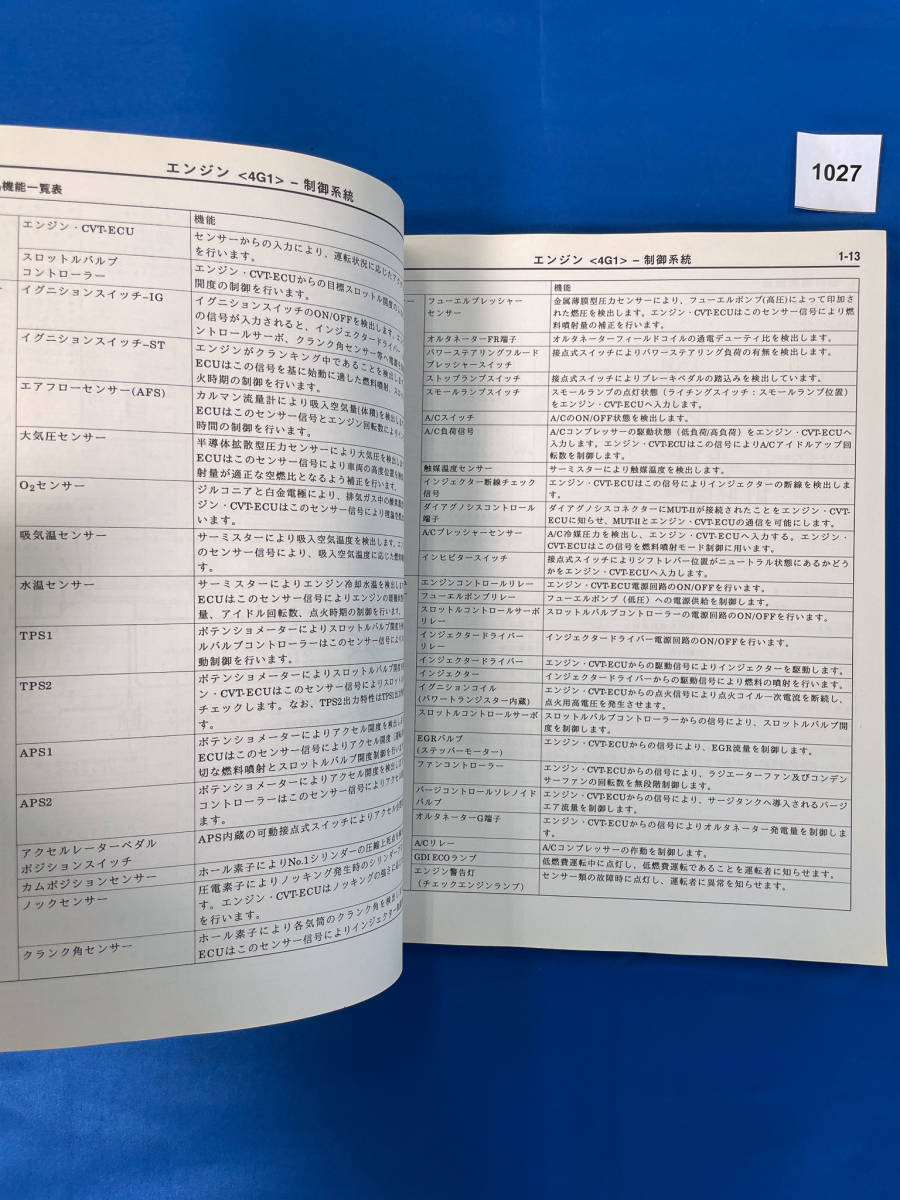 1027
エンジン <4G1> − 制御系統
機能一覧表
機能
エンジン・CVT-ECU
センサーからの入力により、運転状況に応じた
を行います。
スロットルバルブ
コントローラー
エンジン・CVT-ECUからの目標スロットル開度の
開度の制御を行います。
イグニションスイッチ-IG
イグニションスイッチのON/OFFを検出します。
の信号が入力されると、インジェクタードライバー
ントロールサーボ、クランク角センサー等へ
イグニションスイッチ-ST
エンジンがクランキング中であることを検出しま
ECUはこの信号を基に始動に適した燃料噴射、
火時期の制御を行います。
エアフローセンサー(AFS)
カルマン流量計により吸入空気量(体積)を検出
ECUはこのセンサー信号とエンジン回転数により
時間の制御を行います。
大気圧センサー
半導体拡散型圧力センサーにより大気圧を検出し
ECUはこのセンサー信号により車両の高度位置を
射量が適正な空燃比となるよう補正を行います。
O2センサー
ジルコニアと白金電極により、排気ガス中の酸素
ジン・CVT-ECUはこのセンサー信号により理論空燃
います。
吸気温センサー
サーミスターにより吸入空気温度を検出します。
のセンサー信号により、吸入空気温度に応じた燃料
水温センサー
サーミスターによりエンジン冷却水温を検出しま
ECUはこのセンサー信号によりエンジンの暖機
量、アイドル回転数、点火時期の制御を行います。
TPS1
ポテンショメーターによりスロットルバルブ開度を
ルバルブコントローラーはこのセンサー信号により
動制御を行います。
TPS2
ポテンショメーターによりスロットルバルブ開度を
ン・CVT-ECUはこのセンサー信号によりスロット
チェックします。なお、TPS2出力特性はTPS1
す。
APS1
ポテンショメーターによりアクセル開度を検出し
ECUはこのセンサー信号によりアクセル開度
切な燃料噴射とスロットルバルブ開度制御を行い
APS2
ポテンショメーターによりアクセル開度を検出しま
コントローラーはこのセンサー信号によりアクセル
アクセルレーターペダル
ポジションスイッチ
APS内蔵の可動接点式スイッチによりアクセル
カムポジションセンサー
ホール素子によりNo.1シリンダーの圧縮上死点を
ノックセンサー
圧電素子によりノッキング発生時のシリンダー
す。エンジン・CVT-ECUはノッキングの強さに
を行います。
クランク角センサー
ホール素子により各気筒のクランク角を検出
ECUはこのセンサー信号によりインジェクター
エンジン <4G1> − 制御系統
1-13
機能
フューエルプレッシャー
センサー
金属薄膜型圧力センサーにより、フューエルポンプ(高圧)によって印加さ
れた燃圧を検出します。エンジン・CVT-ECUはこのセンサー信号により燃
料噴射量の補正を行います。
オルタネーターFR端子
オルタネーターフィールドコイルの通電デューティ比を検出します。
パワーステアリングフルード
プレッシャースイッチ
接点式スイッチによりパワーステアリング負荷の有無を検出します。
ストップランプスイッチ
接点式スイッチによりブレーキペダルの踏込みを検出しています。
スモールランプスイッチ
スモールランプの点灯状態(ライチングスイッチ：スモールランプ位置)
をエンジン・CVT-ECUへ入力します。
A/Cスイッチ
A/CのON/OFF状態を検出します。
A/C負荷信号
A/Cコンプレッサーの駆動状態（低負荷/高負荷）をエンジン・CVT-ECUへ
入力します。エンジン・CVT-ECUはこの信号によりA/Cアイドルアップ回
転数を制御します。
触媒温度センサー
サーミスターにより触媒温度を検出します。
インジェクター断線チェック
信号
エンジン・CVT-ECUはこの信号によりインジェクターの断線を検出しま
す。
ダイアグノシスコントロール
端子
ダイアグノシスコネクターにMUT-IIが接続されたことをエンジン・CVT-
ECUに知らせ、MUT-IIとエンジン・CVT-ECUの通信を可能にします。
A/Cプレッシャーセンサー
A/C冷媒圧力を検出し、エンジン・CVT-ECUへ入力する。エンジン・
CVT-ECUはこの信号を燃料噴射モード制御に用います。
インヒビタースイッチ
接点式スイッチによりシフトレバー位置がニュートラル状態にあるかどう
かをエンジン・CVT-ECUへ入力します。
エンジンコントロールリレー
エンジン・CVT-ECU電源回路のON/OFFを行います。
フューエルポンプリレー
フューエルポンプ（低圧）への電源供給を制御します。
スロットルコントロールサーボ
リレー
スロットルバルブコントローラーの電源回路のON/OFFを行います。
インジェクタードライバー
リレー
インジェクタードライバー電源回路のON/OFFを行います。
インジェクタードライバー
エンジン・CVT-ECUからの駆動信号によりインジェクターを駆動します。
インジェクター
インジェクタードライバーからの駆動信号により燃料の噴射を行います。
イグニションコイル
(パワートランジスター内蔵)
エンジン・CVT-ECUからの点火信号により点火コイル一次電流を断続し、
点火用高電圧を発生させます。
スロットルコントロールサーボ
スロットルバルブコントローラーからの信号により、スロットルバルブ開
度を制御します。
EGRバルブ
(ステッパーモーター)
エンジン・CVT-ECUからの信号により、EGR流量を制御します。
ファンコントローラー
エンジン・CVT-ECUからの信号により、ラジエーターファン及びコンデン
サーファンの回転数を無段階制御します。
パージコントロールソレノイド
バルブ
エンジン・CVT-ECUからの信号により、サージタンクへ導入されるパージ
エア流量を制御します。
オルタネーターG端子
エンジン・CVT-ECUからの信号によりオルタネーター発電量を制御しま
す。
A/Cリレー
A/Cコンプレッサーの作動を制御します。
GDI ECOランプ
低燃費運転中に点灯し、低燃費運転であることを運転者に知らせます。
エンジン警告灯
(チェックエンジンランプ)
センサー類の故障時に点灯し、運転者に異常を知らせます。